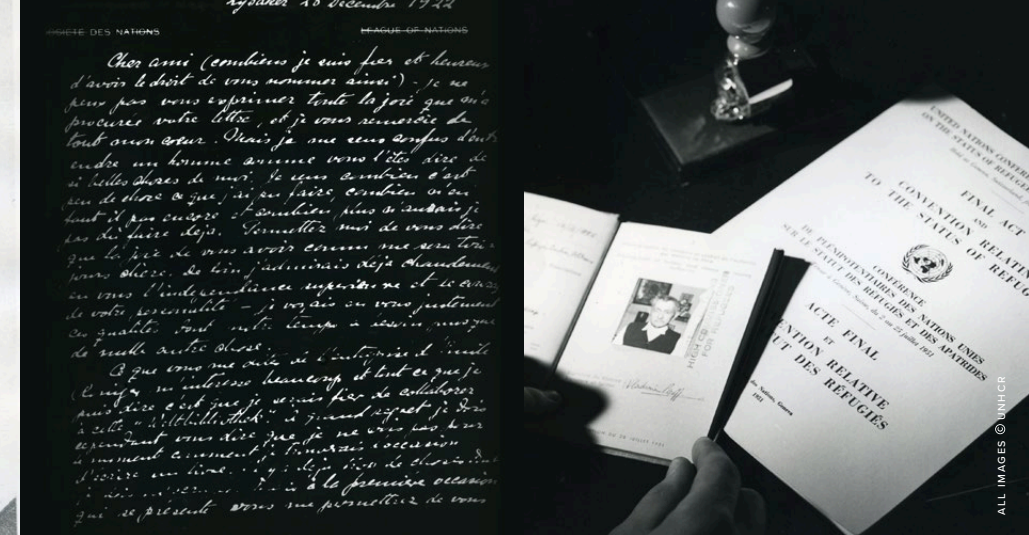 Lysaker 20 Décembre 1922
SOCIÉTÉ DES NATIONS
LEAGUE OF NATIONS
Cher ami (combiens je suis fier et heureux
d'avoir le droit de vous nommer ainsi) - je ne
peux pas vous exprimer toute la joie que m'a
procurée votre lettre, et je vous remercie de
tout mon cœur. Mais je me sens confus d'ent
endre un homme comme vous l'êtes dire de
si belles choses de moi. Je sens combien c'est
peu de chose ce que j'ai pu faire, combien
tout il pas encore et combien plus n'aurais je
pas dû faire déja. Permettez moi de vous dire
que la joie de vous avoir connu me sera touj
jours chère. De loin j'admirais déja chaudement
en vous l'indépendance superieure et le courag
de votre personnalité - je voyais en vous justement
ces qualités dont notre temps a besoin plus que
de nulle autre chose.
Ce que vous me dites de
m'interesse beaucoup et tout ce que je
puis dire c'est que je serais fier de collaborer
à cette "Weltbibliothek". à grand regret je dois
cependant vous dire que je ne vois pas pour
le moment comment je trouverais l'occasion
d'écrire un livre. déja trop de choses
à la première occasion
qui se présente vous me permettrez de vous
HIGH COMMISSIONER
FOR REFUGEES
UNITED NATIONS CONFERENCE
ON THE STATUS OF REFUGEES
Held at Geneva, Switzerland
FINAL ACT
AND
CONVENTION RELATING
TO THE STATUS OF REFUG
CONFÉRENCE
DE PLÉNIPOTENTIAIRES DES NATIONS UNIES
SUR LE STATUT DES RÉFUGIÉS ET DES APATRIDES
Genève, Suisse, du 2 au 25 juillet 1951
ACTE FINAL
ET
VENTION RELATIVE
UT DES RÉFUGIÉS
des Nations, Geneva
1951
ALL IMAGES © UNHCR